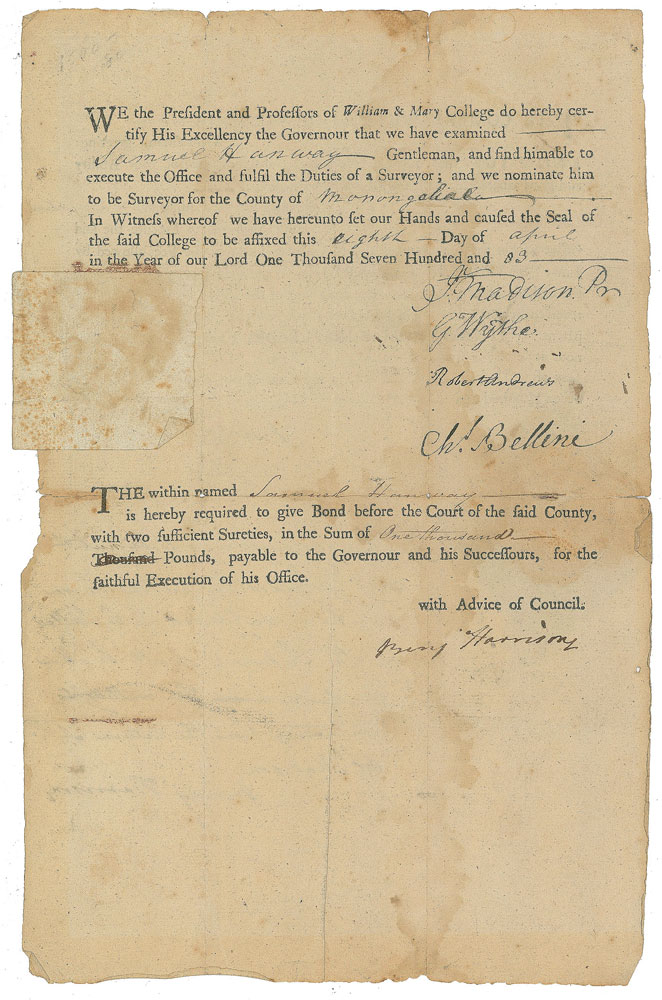 WE the Preſident and Profeſſors of William & Mary College do hereby cer-
tify His Excellency the Governour that we have examined
Samuel Hanway Gentleman, and find himable to
execute the Office and fulfil the Duties of a Surveyor; and we nominate him
to be Surveyor for the County of Monongahala
In Witneſs whereof we have hereunto ſet our Hands and cauſed the Seal of
the ſaid College to be affixed this eighth Day of April
in the Year of our Lord One Thouſand Seven Hundred and 83
J. Madison Pr
G. Wythe.
Robert Andrews
Chs. Bellini
THE within named Samuel Hanway
is hereby required to give Bond before the Court of the ſaid County,
with two ſufficient Sureties, in the Sum of One thousand
Thouſand Pounds, payable to the Governour and his Succeſſours, for the
faithful Execution of his Office.
with Advice of Council.
Benj Harrison